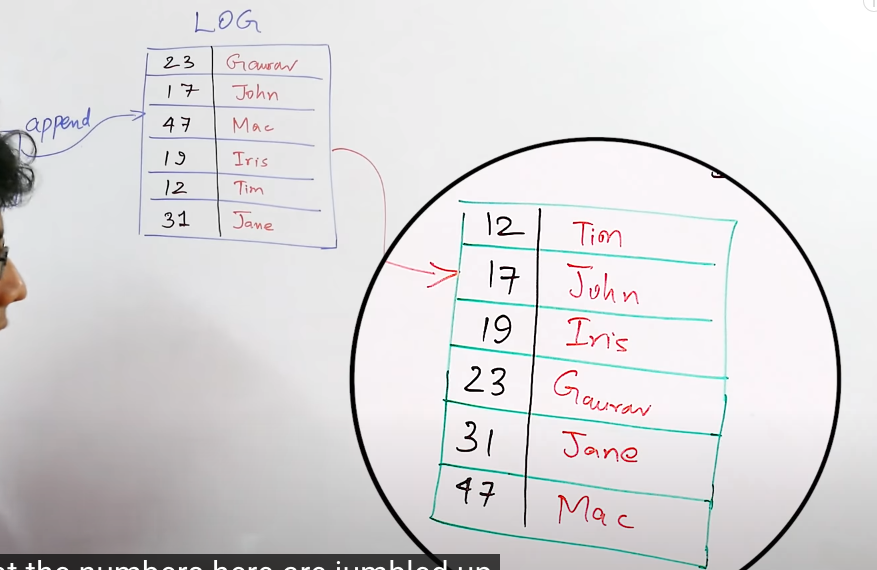 LOG
23 Gaurav
17 John
append
47 Mac
19 Iris
12 Tim
31 Jane
12 Tim
17 John
19 Iris
23 Gaurav
31 Jane
47 Mac
the numbers here are jumbled up